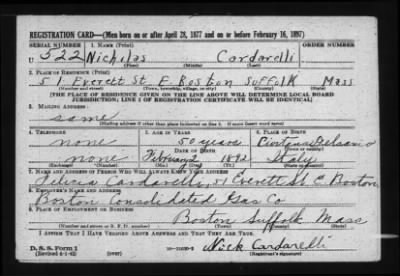 REGISTRATION CARD—(Men born on or after April 28, 1877 and on or before February 16, 1897)
SERIAL NUMBER 1. NAME (Print)
U 522 Nicholas Cardarelli
2. PLACE OF RESIDENCE (Print)
51 Everett St. E. Boston Suffolk Mass
(Number and street) (Town, township, village, or city) (County) (State)
[THE PLACE OF RESIDENCE GIVEN ON THE LINE ABOVE WILL DETERMINE LOCAL BOARD
JURISDICTION; LINE 2 OF REGISTRATION CERTIFICATE WILL BE IDENTICAL]
3. MAILING ADDRESS
same
[Mailing address if other than place indicated on line 2. If same insert word same]
4. TELEPHONE 5. AGE IN YEARS 6. PLACE OF BIRTH
none 50 years
DATE OF BIRTH (Town or county)
none February 2 1892 Italy
(Exchange) (Number) (Mo.) (Day) (Yr.) (State or country)
7. NAME AND ADDRESS OF PERSON WHO WILL ALWAYS KNOW YOUR ADDRESS
Cardarelli, 51 Everett St E Boston
8. EMPLOYER'S NAME AND ADDRESS
Boston Consolidated Gas Co
9. PLACE OF EMPLOYMENT OR BUSINESS
Boston Suffolk Mass
(Number and street or R. F. D. number) (Town) (County) (State)
I AFFIRM THAT I HAVE VERIFIED ABOVE ANSWERS AND THAT THEY ARE TRUE.
D. S. S. Form 1 Nick Cardarelli
(Revised 4-1-42) (Registrant's signature)